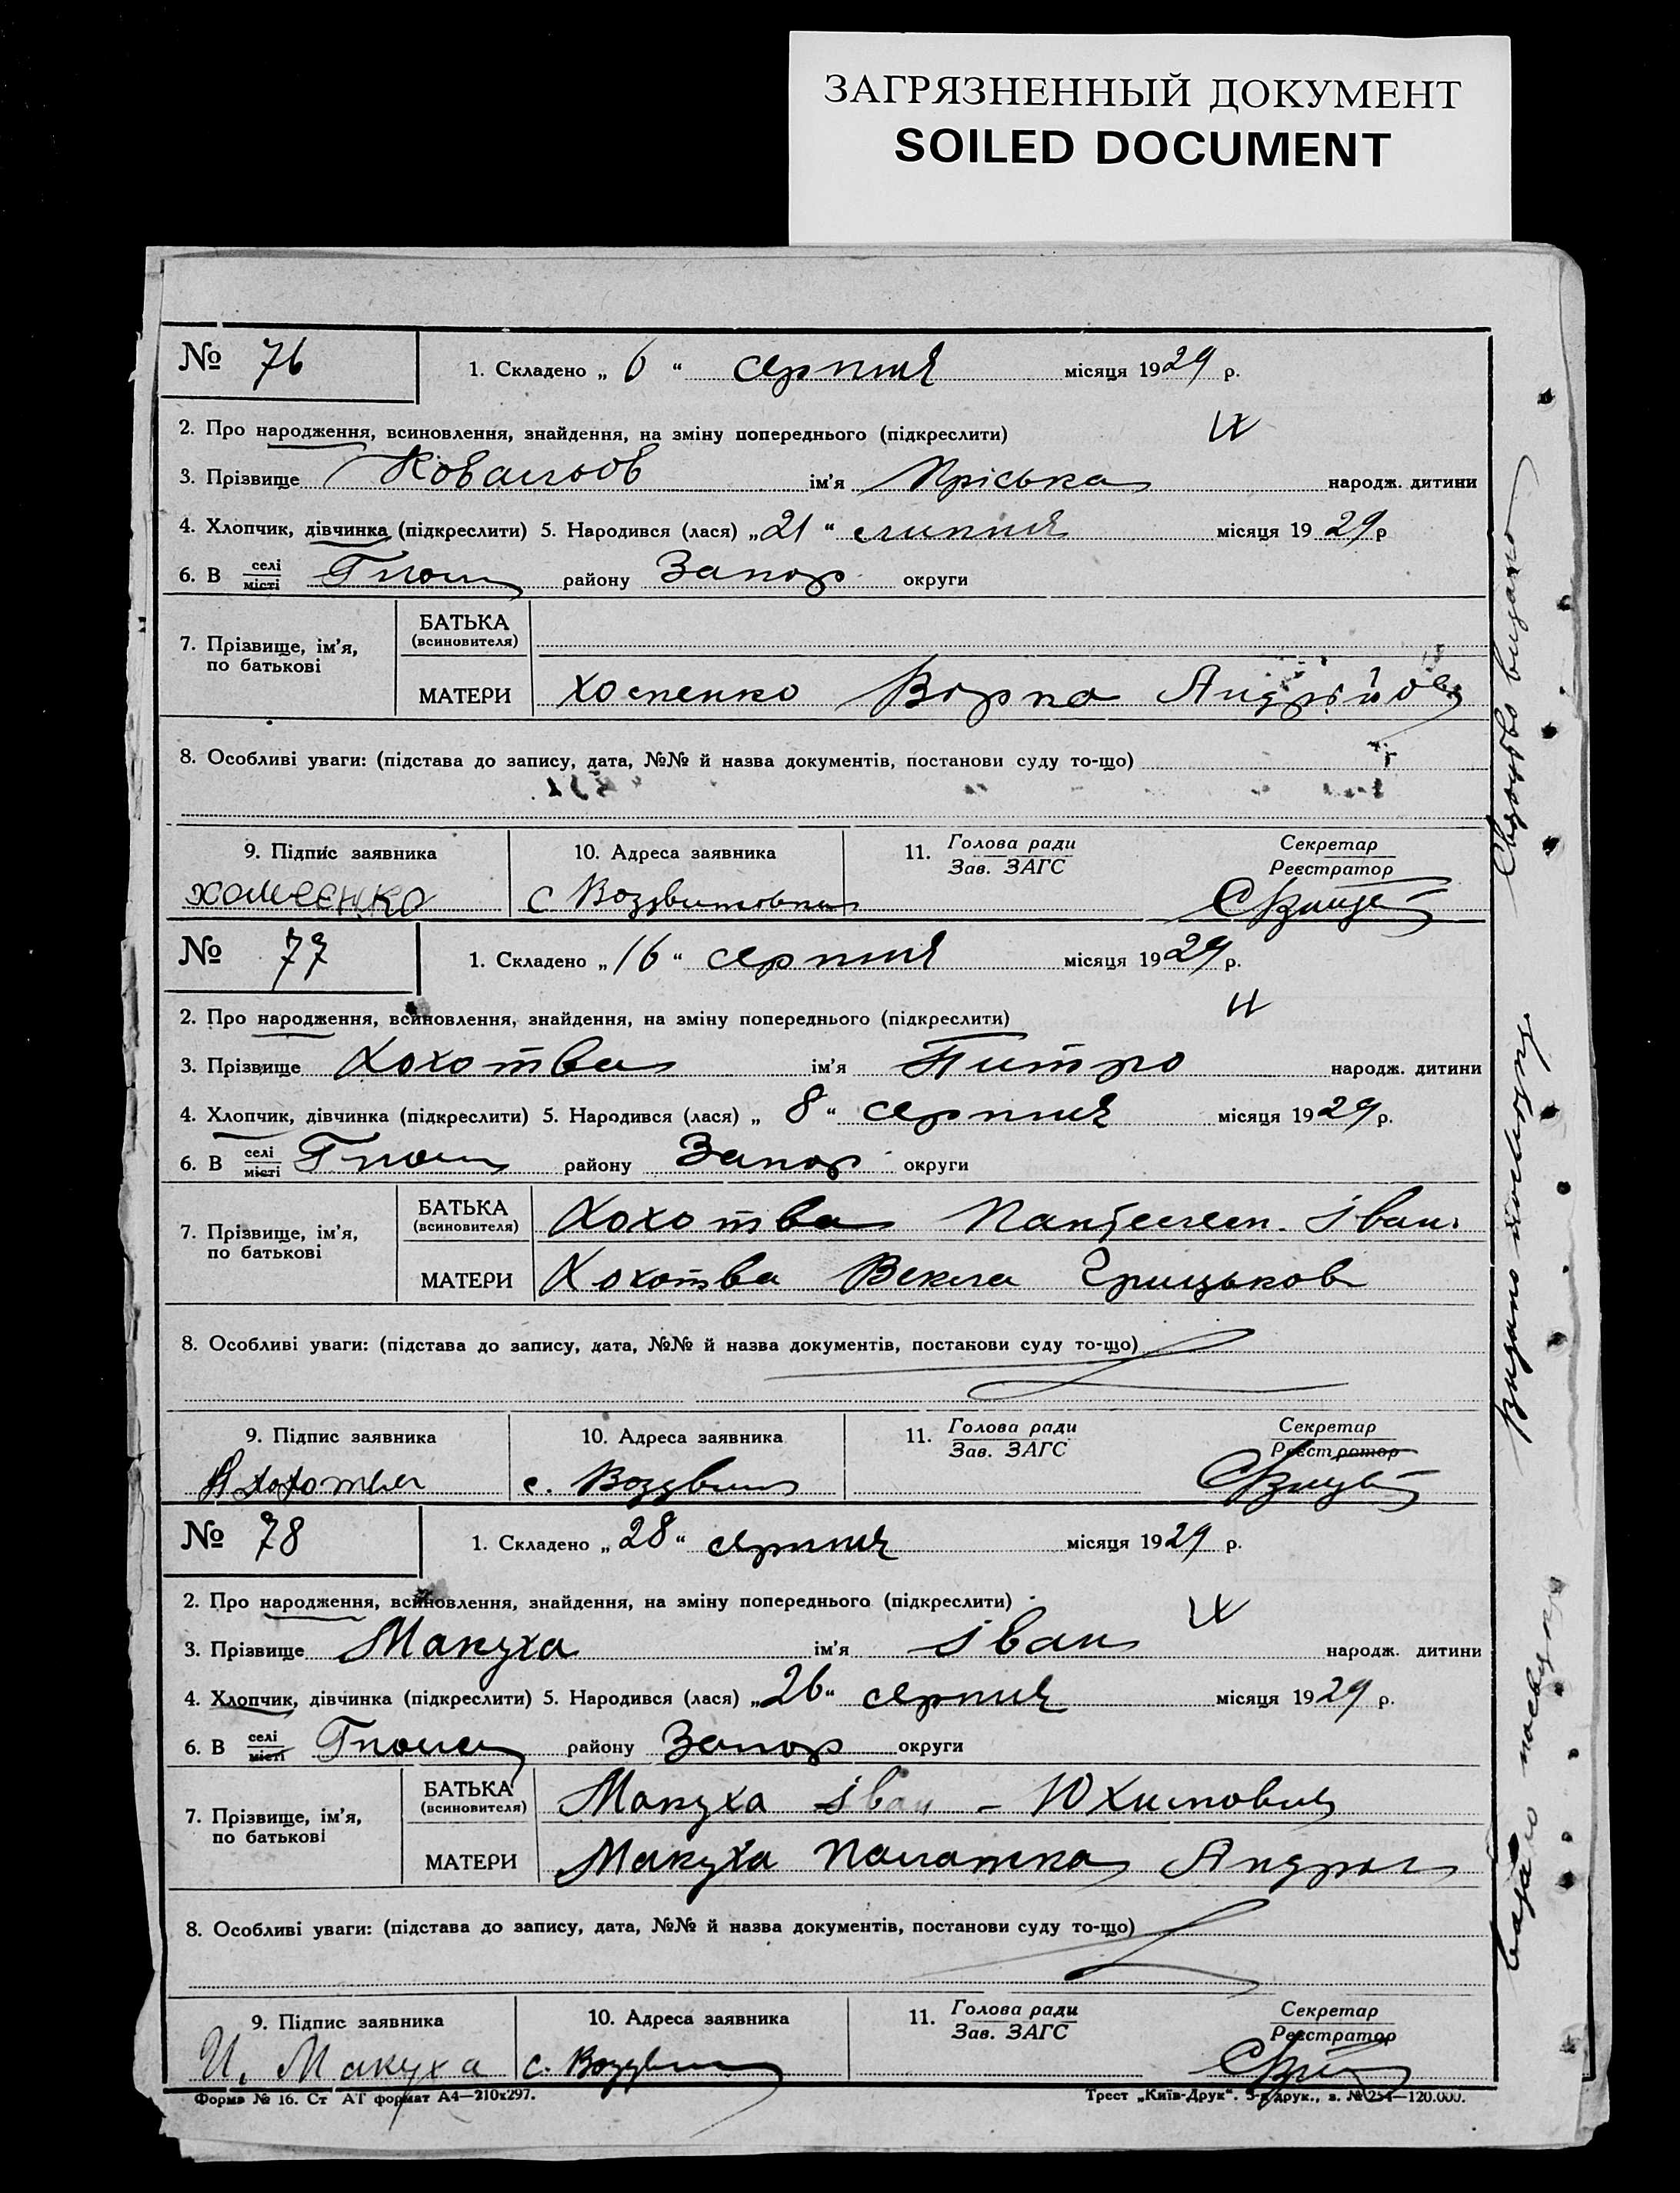 ЗАГРЯЗНЕННЫЙ ДОКУМЕНТ
SOILED DOCUMENT
№ 76 1. Складено „ 6 “ серпня місяця 1929 р.
2. Про народження, всиновлення, знайдення, на зміну попереднього (підкреслити)
3. Прізвище Ковальов ім'я Пріська народж. дитини
4. Хлопчик, дівчинка (підкреслити) 5. Народився (лася) „21“ липня місяця 1929 р
6. В селі місті району Запор округи
7. Прізвище, ім'я, по батькові
БАТЬКА (всиновителя)
МАТЕРИ Хоменко Вірка Андрійов
8. Особливі уваги: (підстава до запису, дата, №№ й назва документів, постанови суду то-що)
9. Підпис заявника 10. Адреса заявника 11. Голова ради Зав. ЗАГС Секретар Реєстратор
хоменко с Воздвижовка
№ 77 1. Складено „16“ серпня місяця 1929 р.
2. Про народження, всиновлення, знайдення, на зміну попереднього (підкреслити)
3. Прізвище Хохотва ім'я Питро народж. дитини
4. Хлопчик, дівчинка (підкреслити) 5. Народився (лася) „ 8 “ серпня місяця 1929 р.
6. В селі місті району Запор округи
7. Прізвище, ім'я, по батькові
БАТЬКА (всиновителя) Хохотва Пантелем. Іван.
МАТЕРИ Хохотва Векла Грицьков
8. Особливі уваги: (підстава до запису, дата, №№ й назва документів, постанови суду то-що)
9. Підпис заявника 10. Адреса заявника 11. Голова ради Зав. ЗАГС Секретар Реєстратор
Хохотва с. Воздвиж
№ 78 1. Складено „28“ серпня місяця 1929 р.
2. Про народження, всиновлення, знайдення, на зміну попереднього (підкреслити)
3. Прізвище Макуха ім'я Іван народж. дитини
4. Хлопчик, дівчинка (підкреслити) 5. Народився (лася) „26“ серпня місяця 1929 р.
6. В селі місті району Запор округи
7. Прізвище, ім'я, по батькові
БАТЬКА (всиновителя) Макуха Іван - Юхимович
МАТЕРИ Макуха Палашка Андріє
8. Особливі уваги: (підстава до запису, дата, №№ й назва документів, постанови суду то-що)
9. Підпис заявника 10. Адреса заявника 11. Голова ради Зав. ЗАГС Секретар Реєстратор
И. Макуха с. Воздвиж
Форма № 16. Ст АТ формат А4—210х297. Трест „Київ-Друк“. 3-я друк., з. № 254—120.000.
Свідоцтво видано
Видано посвідку
видано посвідку